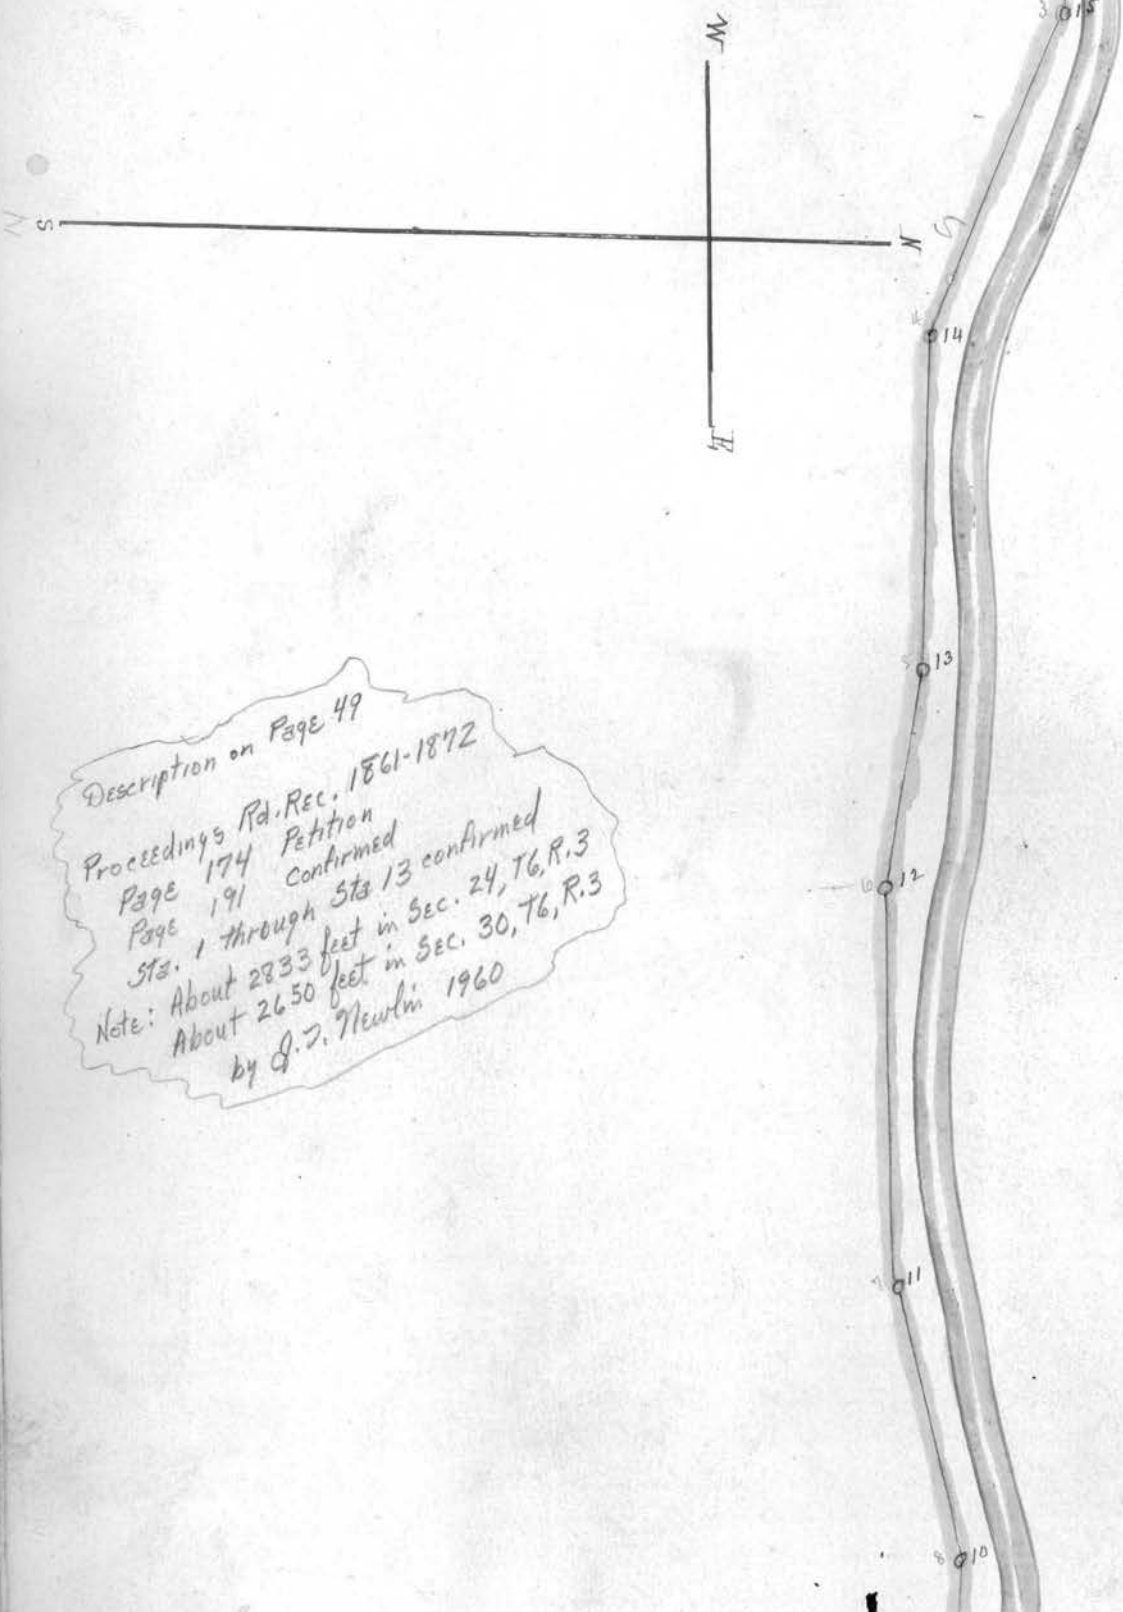 W
3 15
S
N
14
E
5 13
Description on Page 49
Proceedings Rd. Rec. 1861-1872
Page 174 Petition
Page 191 Confirmed
Sta. 1 through Sta 13 confirmed
Note: About 2833 feet in Sec. 24, T6, R.3
About 2650 feet in Sec. 30, T6, R.3
by J. T. Newlin 1960
6 12
7 11
8 10